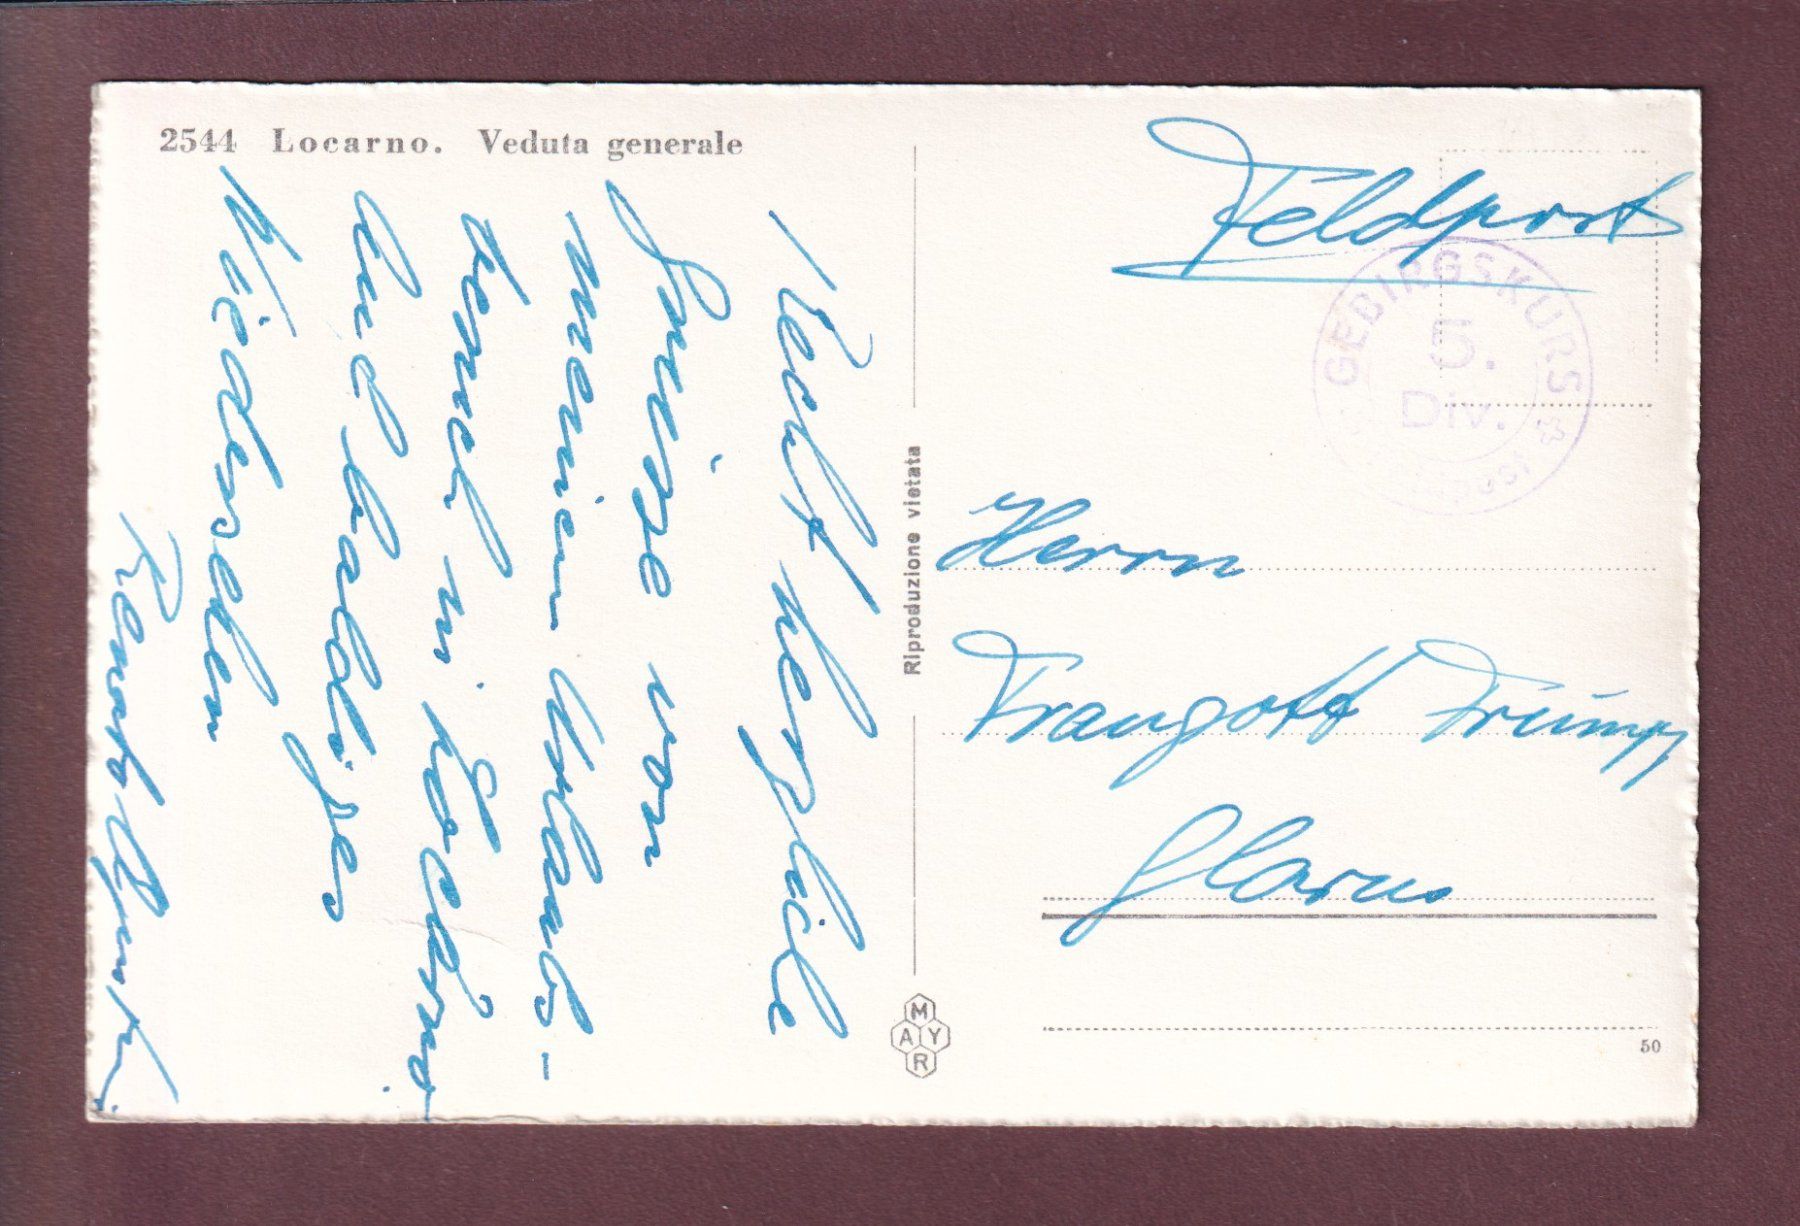 2544 Locarno. Veduta generale
Recht herzliche
Grüsse von
meinem Urlaub-
besuch in Locarno
und baldiges
Wiedersehen
Renato
Riproduzione vietata
MAYR
Feldpost
GEBIRGSKURS
5.
Div.
Herrn
Traugott Trümpy
Glarus
50